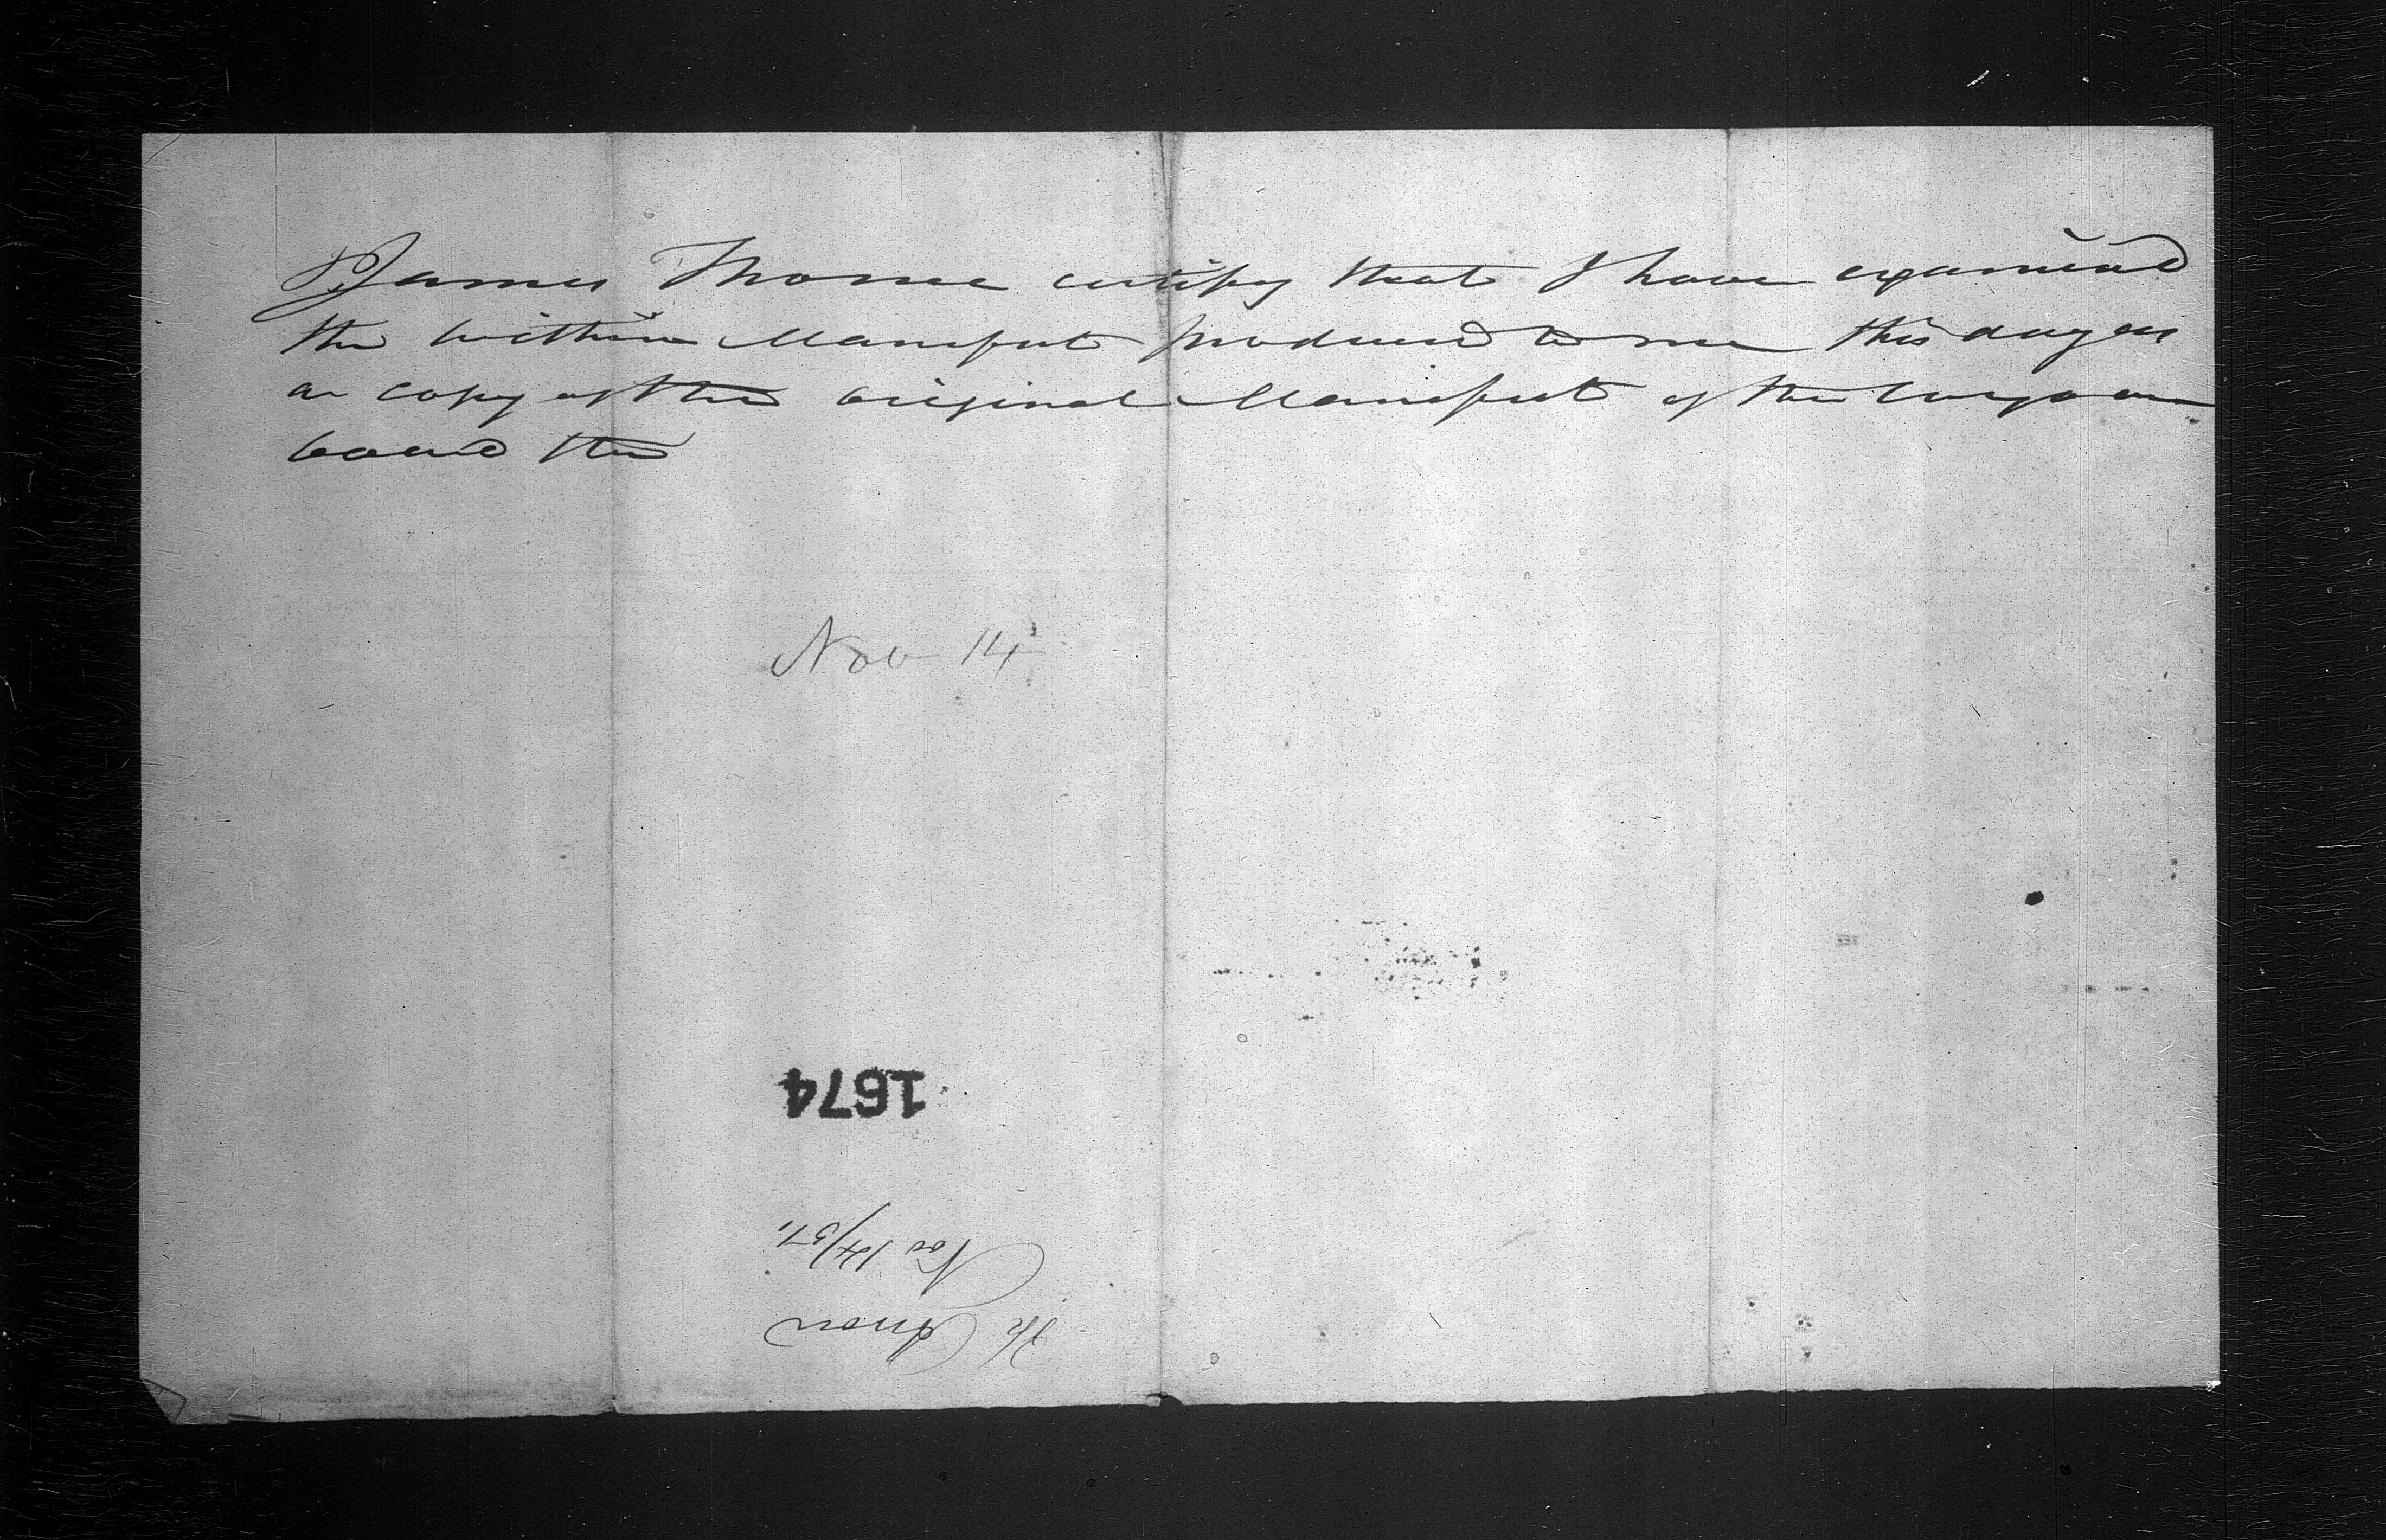 I James Thorne certify that I have examined
the within Manifest produced to me this day as
a copy of the original Manifest of the Cargo on
board the
Nov 14
1674
Nov 14/57